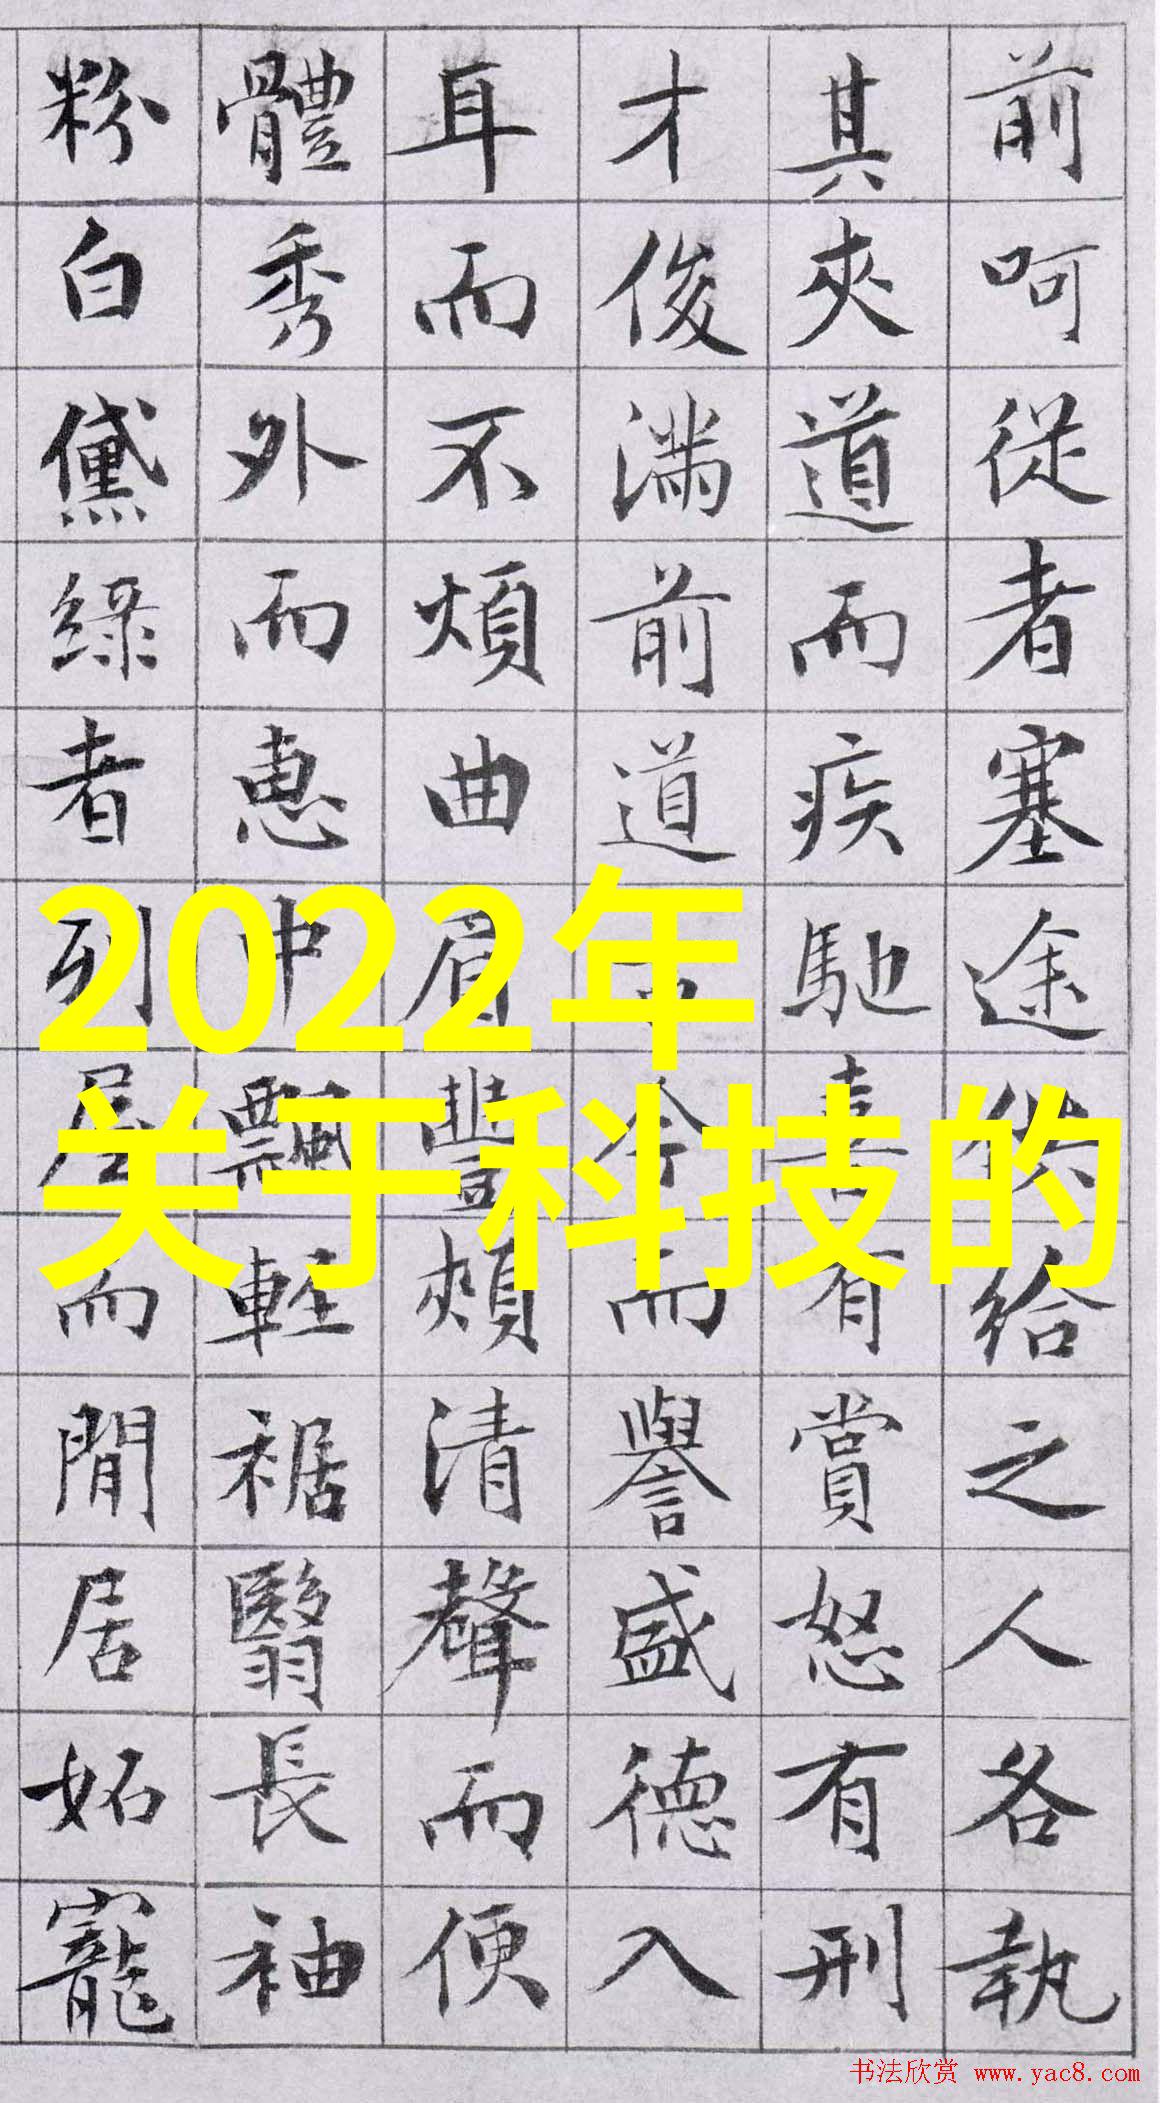 前呵從者塞途供給之人各執
其夾道而疾馳喜有賞怒有刑
才俊滿前道今而譽盛德入
耳而不煩曲眉豐頰清聲而便
體秀外而惠中飄輕裾翳長袖
粉白黛綠者列屋而閒居妬寵
2022年
关于科技的
书法欣赏 www.yac8.com